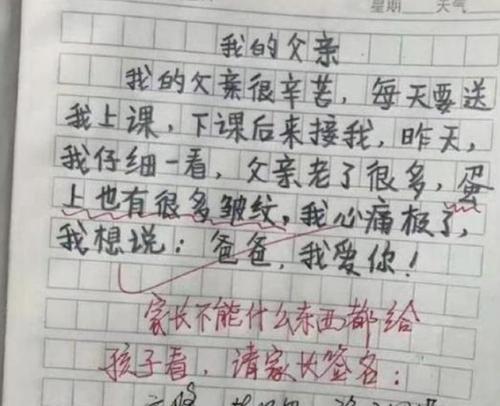 星期 天气
我的父亲
我的父亲很辛苦，每天要送
我上课，下课后来接我，昨天，
我仔细一看，父亲老了很多，蛋
上也有很多皱纹，我心痛极了，
我想说：爸爸，我爱你！
家长不能什么东西都给
孩子看，请家长签名：